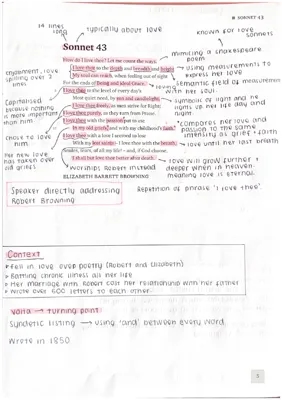 # SONNET 43
14 lines long
typically about love
known for love sonnets
Sonnet 43
mimicing a shakespeare poem
How do I love thee? Let me count the ways:
I love thee to the depth and breadth and height
My soul can reach, when feeling out of sight
For the ends of Being and ideal Grace.
I love thee to the level of every day's
Most quiet need, by sun and candlelight.
I love thee freely, as men strive for Right;
I love thee purely, as they turn from Praise.
I love thee with the passion put to use
In my old griefs, and with my childhood's faith.
I love thee with a love I seemed to lose
With my lost saints – I love thee with the breath,
Smiles, tears, of all my life! – and, if God choose,
I shall but love thee better after death.
ELIZABETH BARRETT BROWNING
enjambment, love spilling over 3 lines
Capitalised because nothing is more important than him
chose to love him
Her new love has taken over old griefs
Using measurements to express her love
Semantic field of measurement with her soul.
symbol of light and he lights up her day and night.
*compares her love and passion to the same intensity of grief + faith
love until her last breath
love will grow further + deeper when in heaven - meaning love is eternal.
worships Robert instead
Speaker directly addressing
Robert Browning
Repetition of phrase 'I love thee'
Context
Fell in love over poetry (Robert and Elizabeth)
Battling chronic illness all her life
Her marriage with Robert cost her relationship with her father
Wrote over 600 letters to each other.
Volta → turning point
Syndetic listing → using 'and' between every word
Wrote in 1850